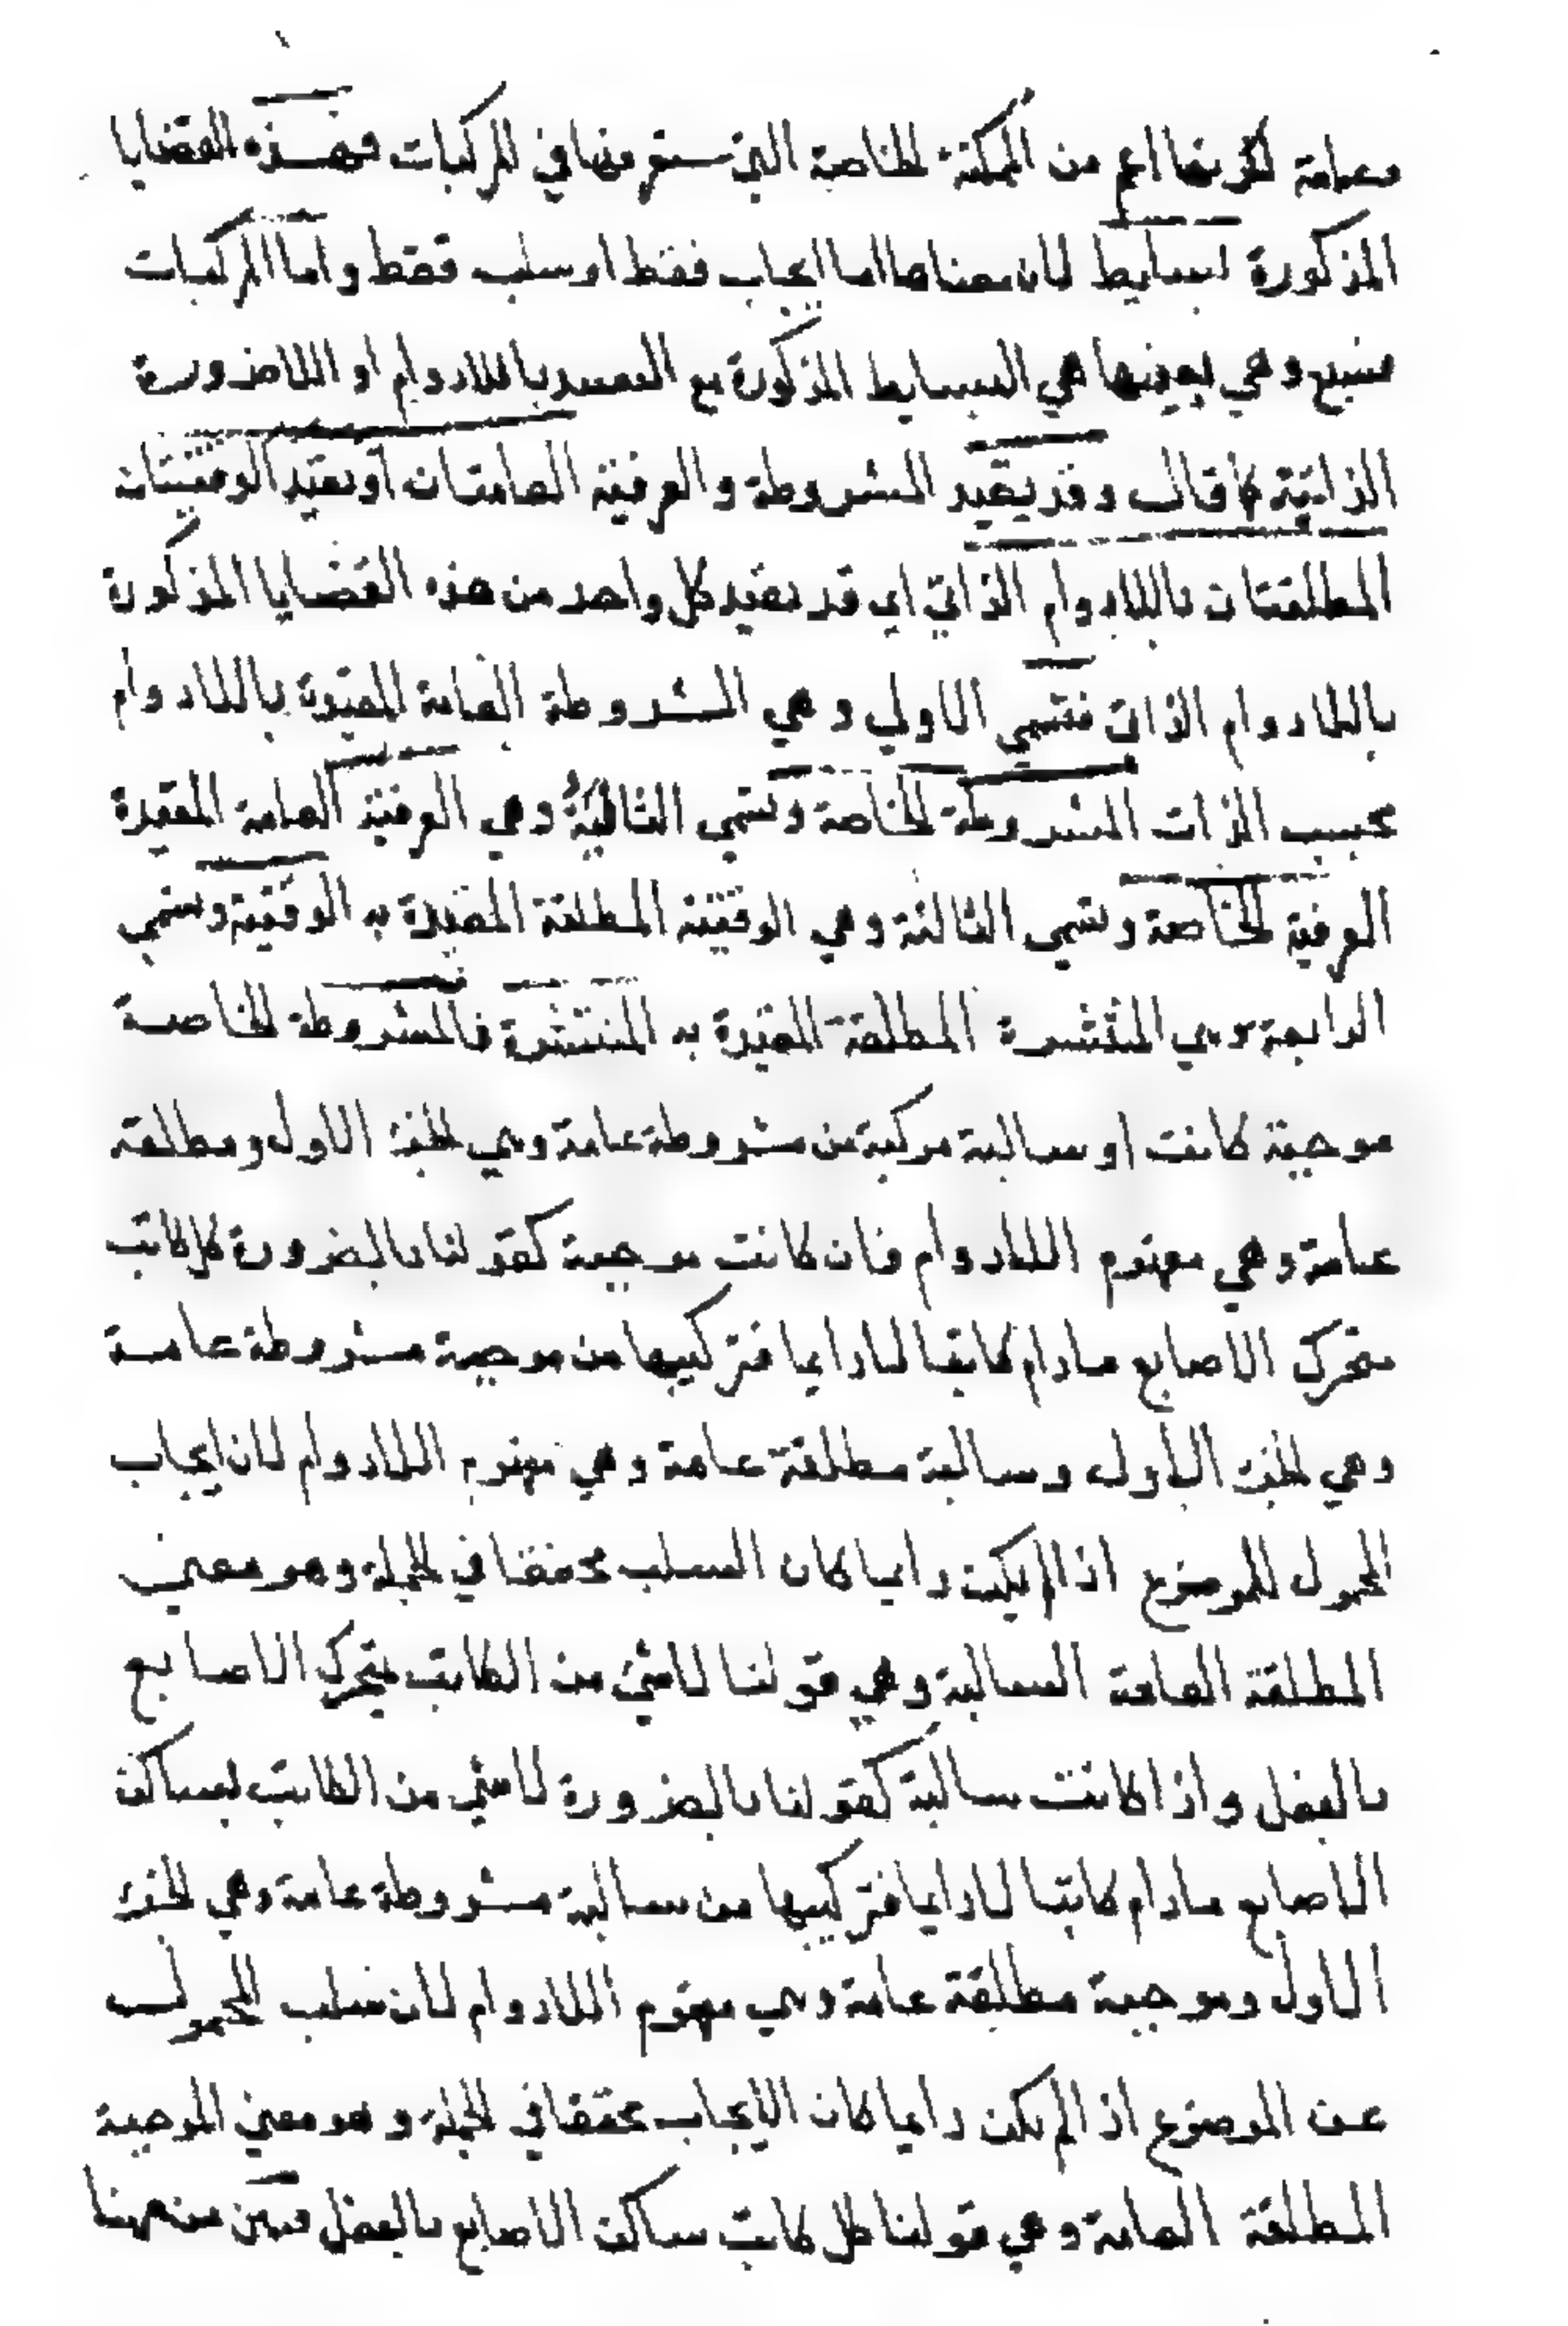 وعامة لكونها اعم من الممكنة الخاصة التي ستعرفها في المركبات فهذه القضايا
المذكورة بسايط لان معناها اما ايجاب فقط او سلب فقط واما المركبات
فسبع وهي بعينها هي البسايط المذكورة مع القيد باللادوام او اللاضرورة
الذاتية كما قال وقد يقيد المشروطة والعرفية العامتان او يقيد الوقتيتان
المطلقتان باللادوام الذاتي اي قد يقيد كل واحد من هذه القضايا المذكورة
باللادوام الذاتي فتسمي الاولي وهي المشروطة العامة المقيدة باللادوام
بحسب الذات المشروطة الخاصة وتسمي الثانية وهي العرفية العامة المقيدة
العرفية الخاصة وتسمي الثالثة وهي الوقتية المطلقة المقيدة به الوقتية وتسمي
الرابعة وهي المنتشرة المطلقة المقيدة به المنتشرة فالمشروطة الخاصة
موجبة كانت او سالبة مركبة من مشروطة عامة وهي الجزء الاول ومطلقة
عامة وهي مفهوم اللادوام فان كانت موجبة كقولنا بالضرورة كل كاتب
متحرك الاصابع مادام كاتبا لادايما فتركيبها من موجبة مشروطة عامة
وهي الجزء الاول وسالبة مطلقة عامة وهي مفهوم اللادوام لان ايجاب
المحمول للموضوع اذا لم يكن دايما كان السلب محققا في الجملة وهو معني
المطلقة العامة السالبة وهي قولنا لاشئ من الكاتب بمتحرك الاصابع
بالفعل واذا كانت سالبة كقولنا بالضرورة لاشي من الكاتب بساكن
الاصابع مادام كاتبا لادايما فتركيبها من سالبة مشروطة عامة وهي الجزء
الاول وموجبة مطلقة عامة وهي مفهوم اللادوام لان سلب المحمول
عن الموضوع اذا لم يكن دايما كان الايجاب محققا في الجملة وهو معني الموجبة
المطلقة العامة وهي قولنا كل كاتب ساكن الاصابع بالفعل فتبين من ههنا